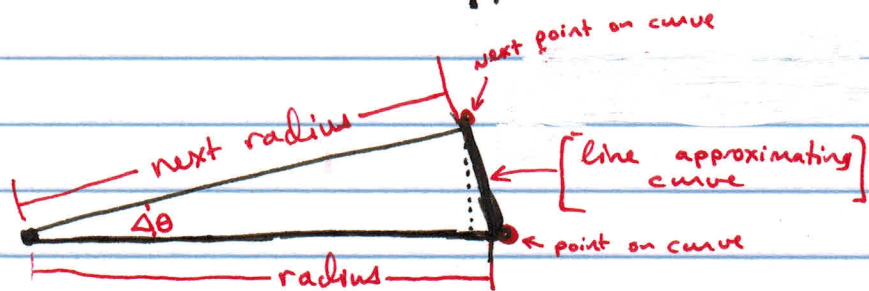 next point on curve
next radius
[line approximating
curve]
Δθ
point on curve
radius